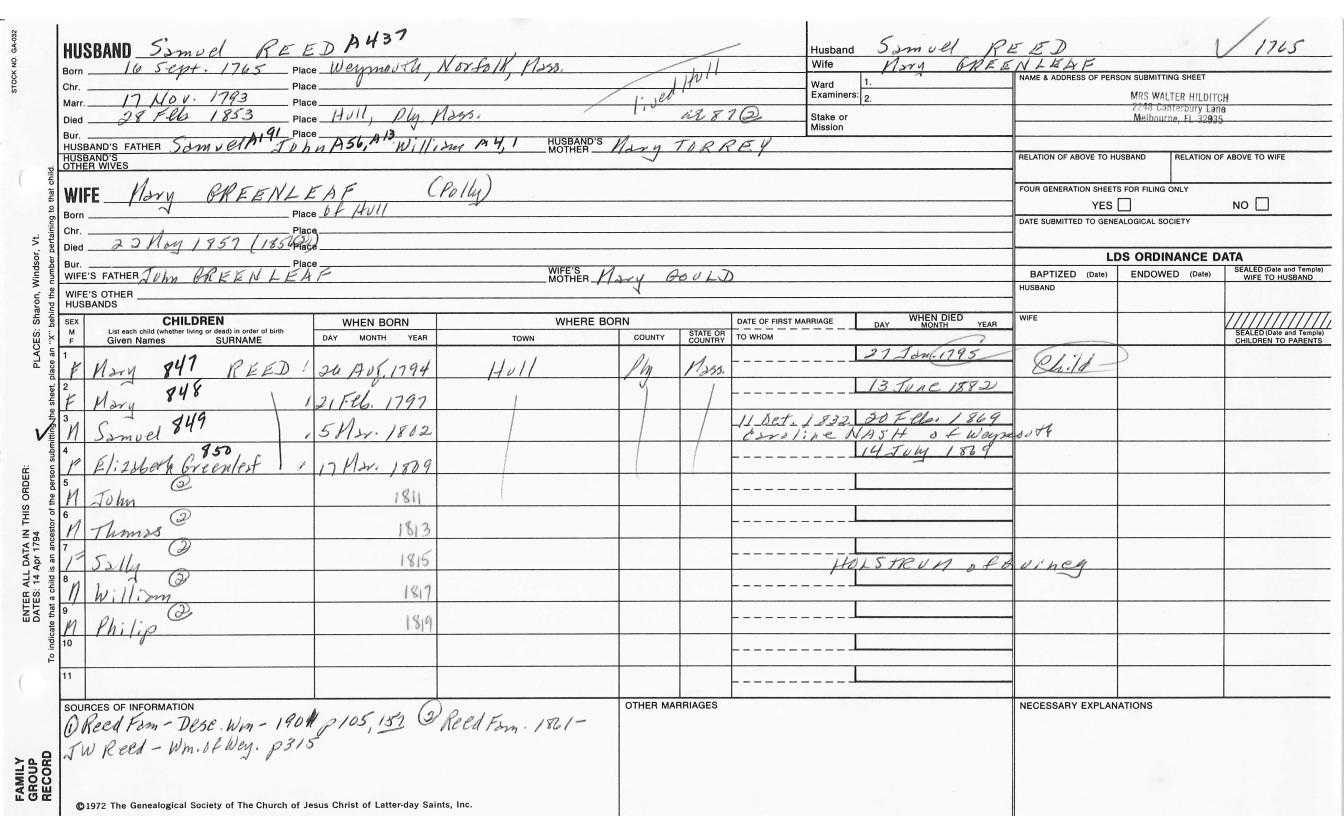 STOCK NO. GA-032
HUSBAND Samuel REED A437
Born 16 Sept. 1765 Place Weymouth, Norfolk, Mass.
Chr. Place
Marr. 17 Nov. 1793 Place
Died 28 Feb 1853 Place Hull, Ply Mass.
Bur. Place
lived Hull
HUSBAND'S FATHER Samuel A191 John A56, A13 William A4,1 HUSBAND'S MOTHER Mary TORREY
HUSBAND'S OTHER WIVES
WIFE Mary GREENLEAF (Polly)
Born Place of Hull
Chr. Place
Died 22 May 1857 Place
Bur. Place
WIFE'S FATHER John GREENLEAF WIFE'S MOTHER Mary GOULD
WIFE'S OTHER HUSBANDS
Husband Samuel REED 1765
Wife Mary GREENLEAF
Ward Examiners: 1.
2.
Stake or Mission
NAME & ADDRESS OF PERSON SUBMITTING SHEET
MRS WALTER HILDITCH
Canterbury Lane
Melbourne, FL 32935
RELATION OF ABOVE TO HUSBAND RELATION OF ABOVE TO WIFE
FOUR GENERATION SHEETS FOR FILING ONLY
YES NO
DATE SUBMITTED TO GENEALOGICAL SOCIETY
LDS ORDINANCE DATA
BAPTIZED (Date) ENDOWED (Date) SEALED (Date and Temple) WIFE TO HUSBAND
HUSBAND
WIFE
SEALED (Date and Temple) CHILDREN TO PARENTS
SEX M F CHILDREN List each child (whether living or dead) in order of birth Given Names SURNAME
WHEN BORN DAY MONTH YEAR
WHERE BORN TOWN COUNTY STATE OR COUNTRY
DATE OF FIRST MARRIAGE TO WHOM
WHEN DIED DAY MONTH YEAR
1 F Mary 847 REED 20 Aug. 1794 Hull Ply Mass. 27 Jan. 1795 Child
2 F Mary 848 21 Feb. 1797 13 June 1882
3 M Samuel 849 5 Mar. 1802 11 Oct. 1832 20 Feb. 1869
Caroline NASH of Weymouth
4 F Elizabeth Greenleaf 850 17 Mar. 1809 14 July 1869
5 M John ② 1811
6 M Thomas ② 1813
7 F Sally ② 1815 HOLSTRUM of Quincy
8 M William ② 1817
9 M Philip ② 1819
10
11
SOURCES OF INFORMATION
① Reed Fam - Desc. Wm - 1901 p105, 157 ② Reed Fam. 1861 -
JW Reed - Wm. of Wey. p315
OTHER MARRIAGES
NECESSARY EXPLANATIONS
©1972 The Genealogical Society of The Church of Jesus Christ of Latter-day Saints, Inc.
ENTER ALL DATA IN THIS ORDER:
DATES: 14 Apr 1794
PLACES: Sharon, Windsor, Vt.
To indicate that a child is an ancestor of the person submitting the sheet, place an "X" behind the number pertaining to that child.
FAMILY GROUP RECORD